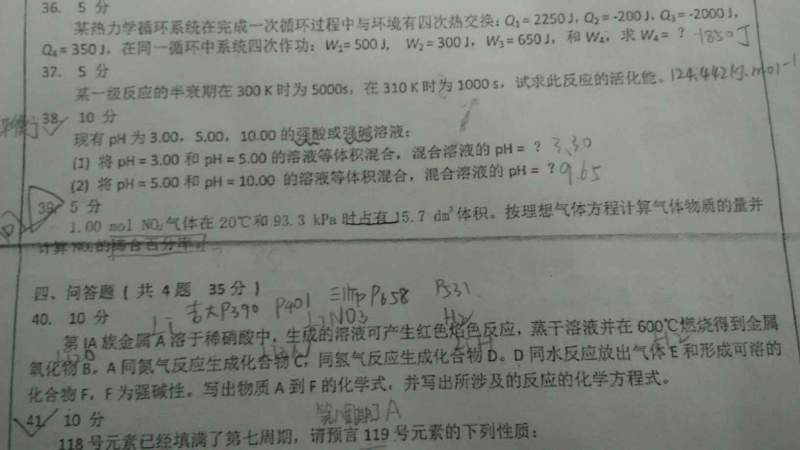 36. 5 分
某热力学循环系统在完成一次循环过程中与环境有四次热交换：Q₁ = 2250 J, Q₂ = -200 J, Q₃ = -2000 J,
Q₄ = 350 J，在同一循环中系统四次作功：W₁= 500 J, W₂ = 300 J, W₃ = 650 J，和 W₄，求 W₄ = ? -1850 J
37. 5 分
某一级反应的半衰期在 300 K 时为 5000s，在 310 K 时为 1000 s，试求此反应的活化能。124.442 kJ·mol⁻¹
38. 10 分
现有 pH 为 3.00，5.00，10.00 的强酸或强碱溶液：
(1) 将 pH = 3.00 和 pH = 5.00 的溶液等体积混合，混合溶液的 pH = ? 3.30
(2) 将 pH = 5.00 和 pH = 10.00 的溶液等体积混合，混合溶液的 pH = ? 9.65
39. 5 分
1.00 mol NO₂ 气体在 20℃ 和 93.3 kPa 时占有 15.7 dm³ 体积。按理想气体方程计算气体物质的量并
计算 NO₂ 的缔合百分率。
四、问答题 ( 共 4 题 35 分 )
吉大P390 P401 P658 P531
40. 10 分
Li LiNO3 H2
第 IA 族金属 A 溶于稀硝酸中，生成的溶液可产生红色焰色反应，蒸干溶液并在 600℃ 燃烧得到金属
氧化物 B。A 同氮气反应生成化合物 C，同氢气反应生成化合物 D。D 同水反应放出气体 E 和形成可溶的
化合物 F，F 为强碱性。写出物质 A 到 F 的化学式，并写出所涉及的反应的化学方程式。
41. 10 分
第八周期IA
118 号元素已经填满了第七周期，请预言 119 号元素的下列性质：